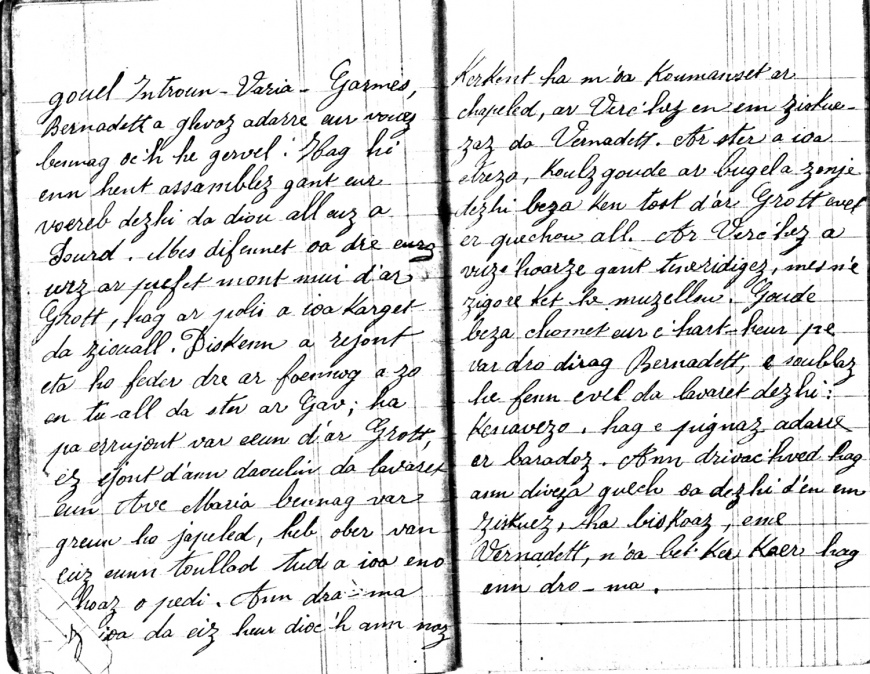 gouel Introun-Varia-Garmes,
Bernadett a glevaz adarre eur vouez
bennag oc'h he gervel. Hag hi
enn hent assamblez gant eur
voereb dezhi da diou all euz a
Lourd. Mes difennet oa dre
urz ar prefet mont mui d'ar
Grott, hag ar polis a ioa karget
da ziouall. Diskenn a rejont
eta ho feder dre ar foennog a zo
en tu-all da ster ar Gav; ha
pa errujont var eeun d'ar Grott,
ez ejont d'ann daoulin da lavaret
eun Ave Maria bennag var
greun ho japeled, heb ober van
euz eunn toullad tud a ioa eno
hoaz o pedi. Ann dra-ma
ioa da eiz heur dioc'h ann noz
Kerkent ha m'oa koumanset ar
chapeled, ar Verc'hez en em ziskue-
zaz da Vernadett. Ar ster a ioa
etrezo, koulzgoude ar bugel a zonje
dezhi beza ken tost d'ar Grott evel
er guechou all. Ar Verc'hez a
vuze hoarze gant tneridigez, mes n'e
zigore ket he muzellou. Goude
beza chomet eur c'hart-heur pe
var dro dirag Bernadett, e soublaz
he fenn evel da lavaret dezhi:
Kenavezo, hag e pignaz adarre
er baradoz. Ann drivac'hved hag
ann diveza guech oa dezhi d'en em
ziskuez, ha biskoaz, eme
Vernadett, n'oa bet ker kaer hag
enn dro-ma.